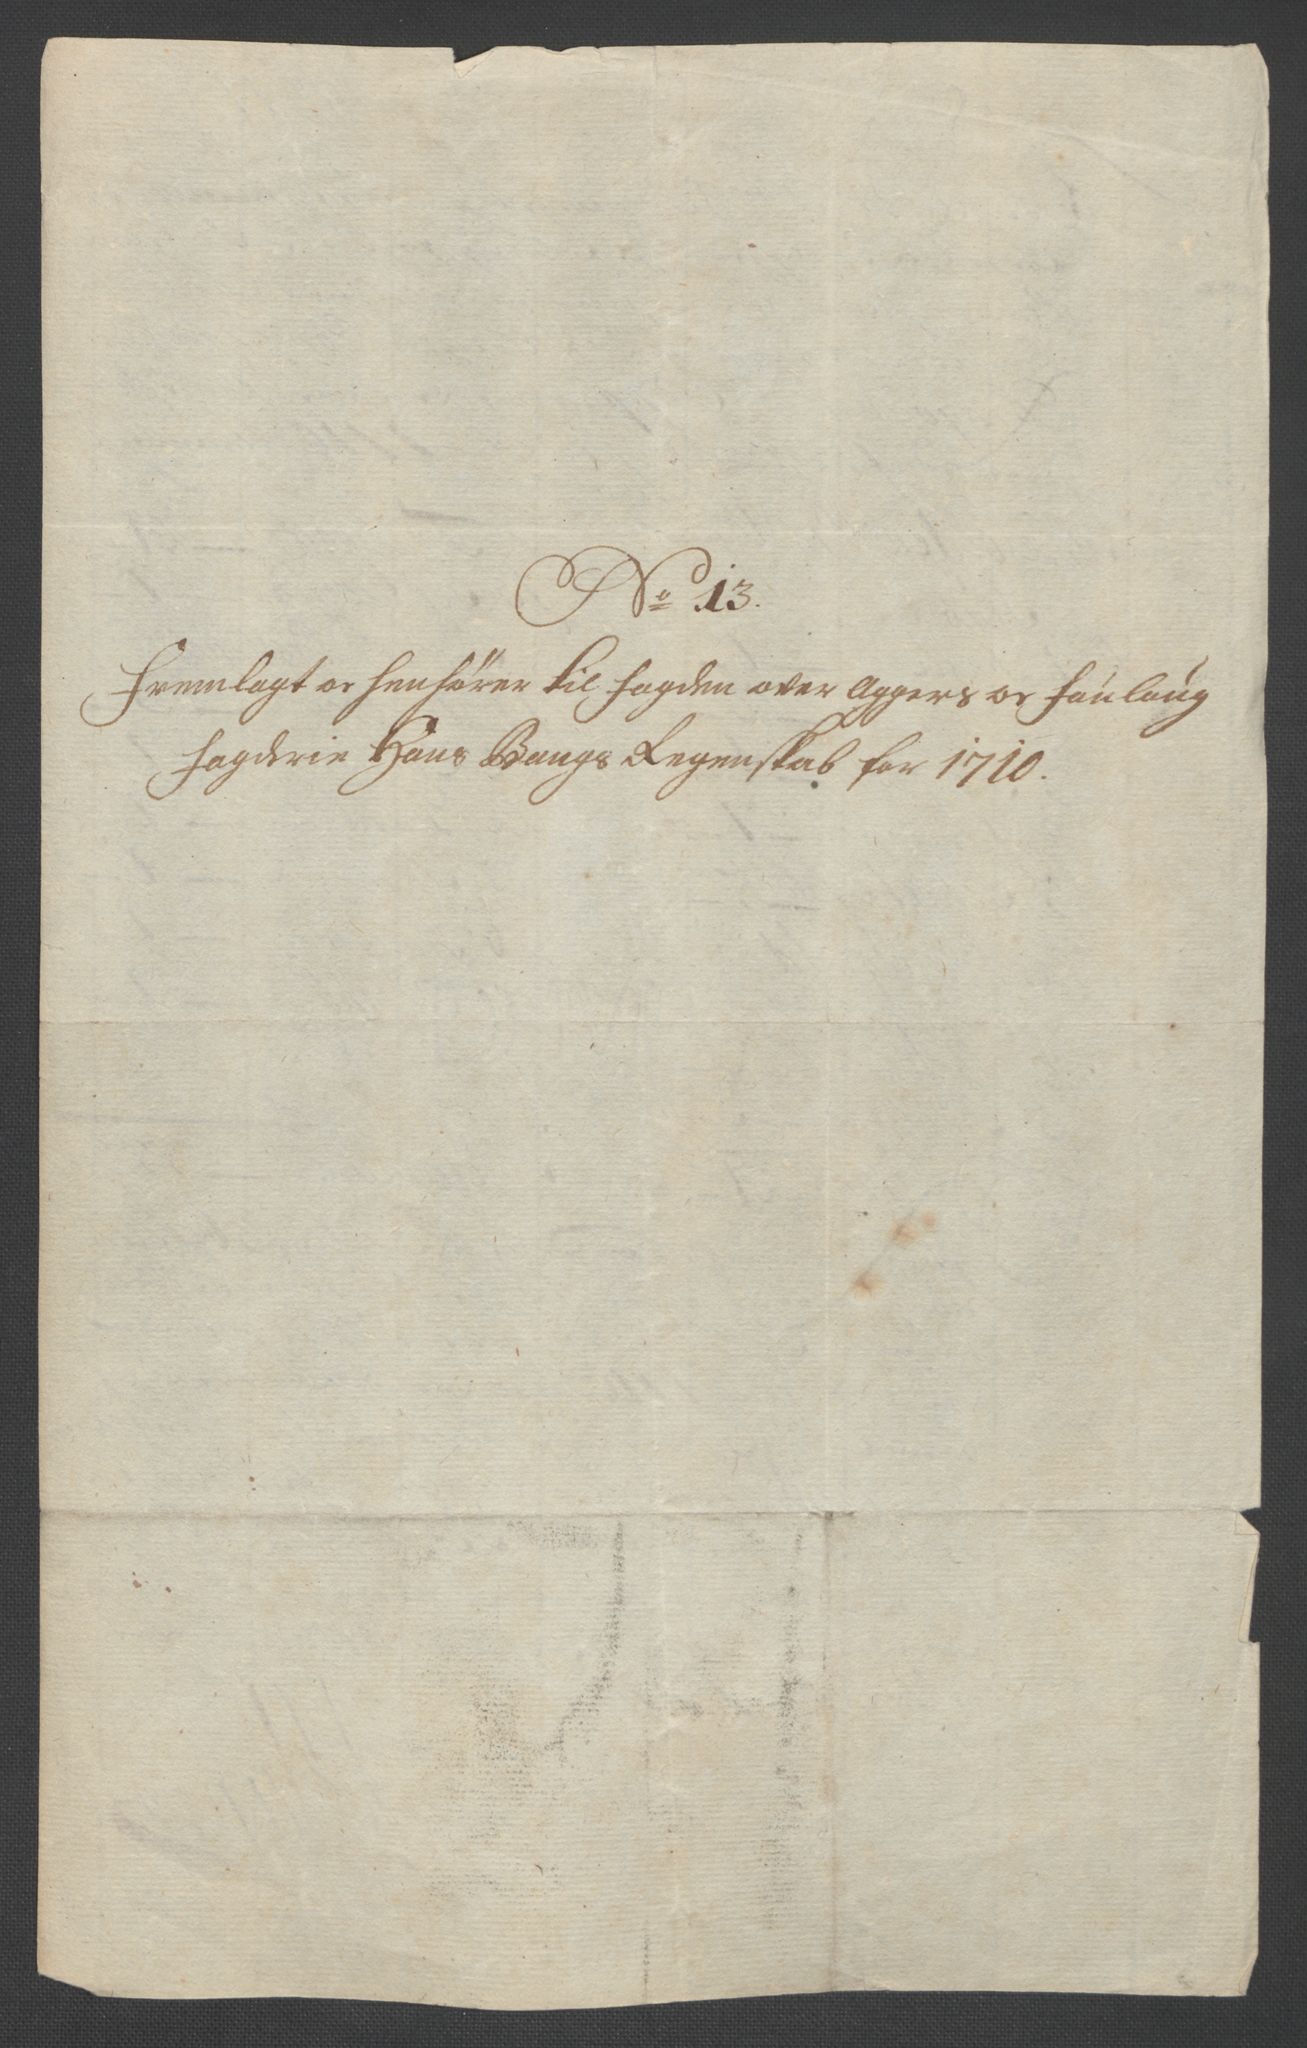 No 13.
Fremlagt og henhører til fogden over Aggers og Fouloug
fogderie Hans Bangs Regenskab for 1710.